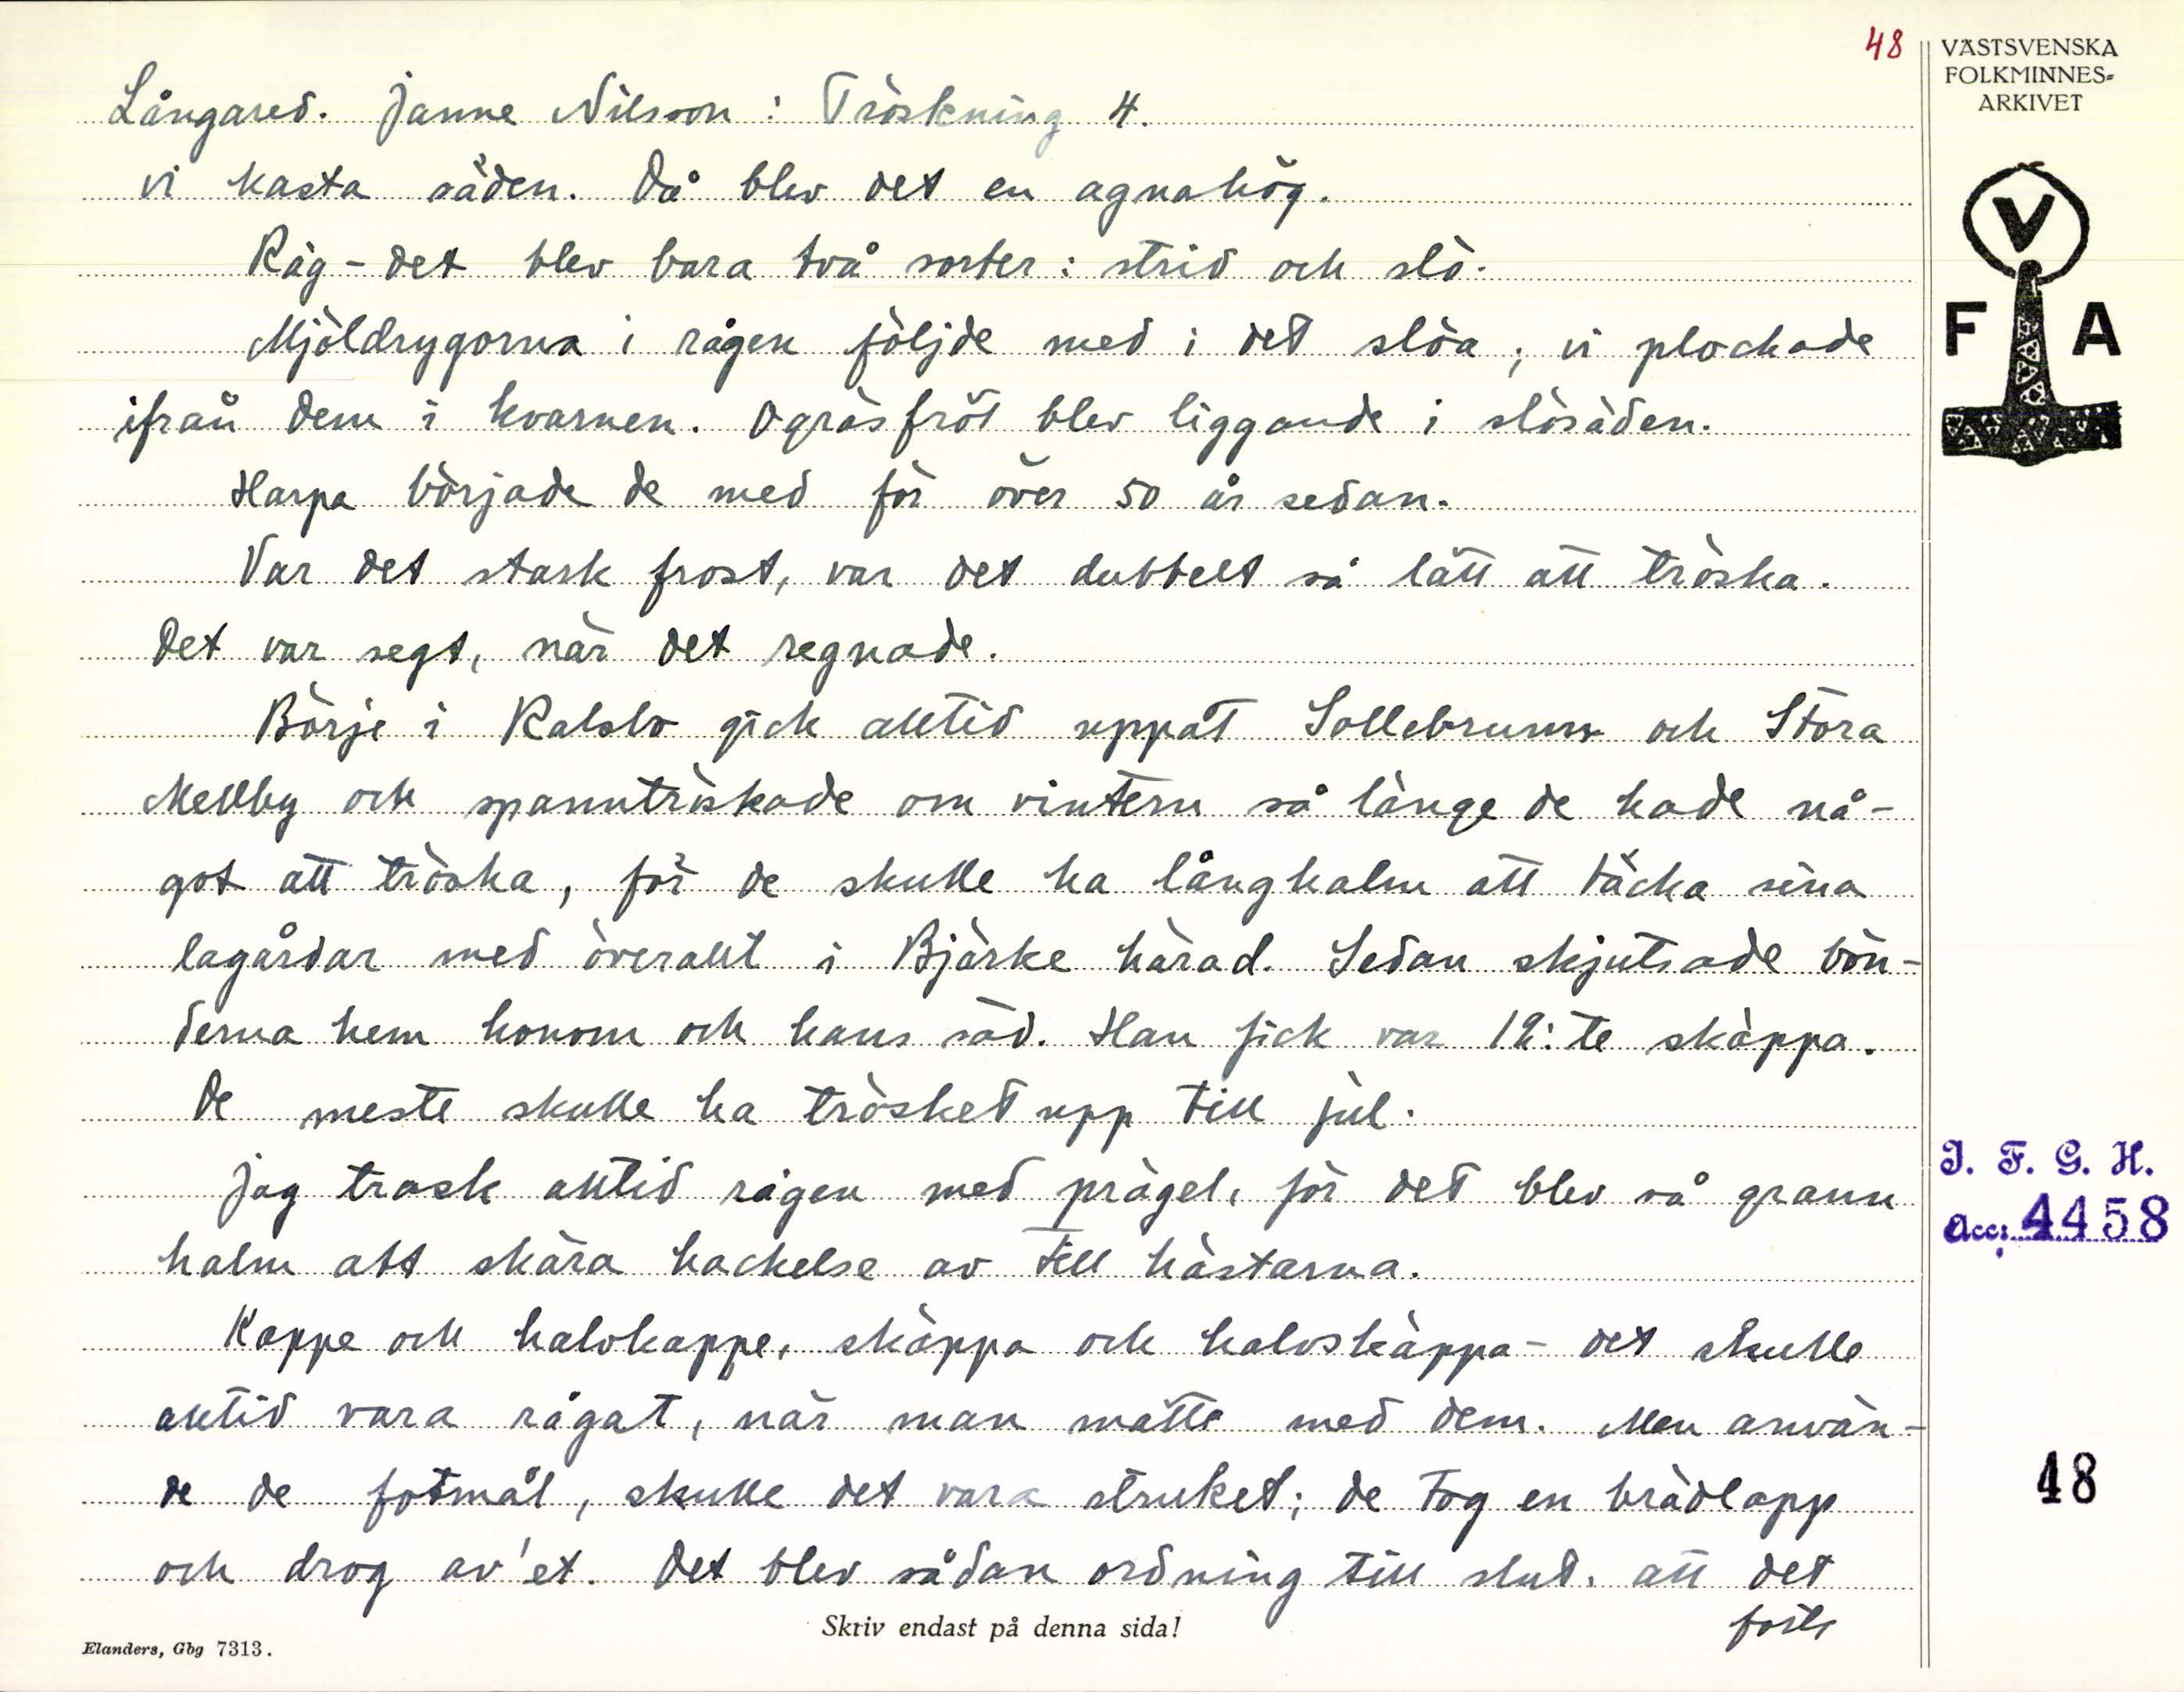 48
VÄSTSVENSKA
FOLKMINNES=
ARKIVET
Långared. Janne Nilsson: Tröskning 4.
vi kasta säden. Då blev det en agnahög.
Råg - det blev bara två sorter: strid och slö.
Mjöldrygorna i rågen följde med i det slöa; vi plockade
ifrån dem i kvarnen. Ogräsfröt blev liggande i slösäden.
Harpa började de med för över 50 år sedan.
Var det stark frost, var det dubbelt så lätt att tröska.
Det var segt, när det regnade.
Börje i Kalslo gick alltid uppåt Sollebrunn och Stora
Mellby och spanntröskade om vintern så länge de hade nå-
got att tröska, för de skulle ha långhalm att täcka sina
lagårdar med överallt i Bjärke härad. Sedan skjutsade bön-
derna hem honom och hans säd. Han fick var 12:te skäppa.
De meste skulle ha trösket upp till jul.
Jag trask alltid rågen med prägel, för det blev så grann
halm att skära hackelse av till hästarna.
Kappe och halvkappe, skäppa och halvskäppa - det skulle
alltid vara rågat, när man mätte med dem. Men använ-
de de fotmål, skulle det vara struket; de tog en brädlapp
och drog av'et. Det blev sådan ordning till slut, att det
forts
V
F A
I. F. G. H.
Acc: 4458
48
Skriv endast på denna sida!
Elanders, Gbg 7313.